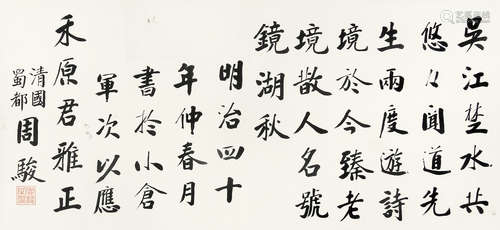 吳江楚水共
悠々聞道先
生兩度遊詩
境於今臻老
境散人名號
鏡湖秋
明治四十
年仲春月
書於小倉
軍次以應
禾原君雅正
清國
蜀都
周駿